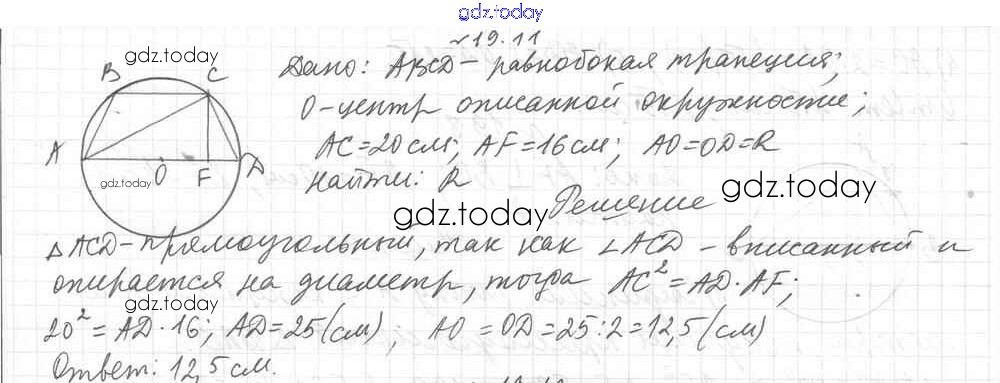 gdz.today
№19.11
gdz.today
Дано: ABCD – равнобокая трапеция;
O – центр описанной окружности;
AC = 20 см; AF = 16 см; AO = OD = R
Найти: R
gdz.today
B C
A O F D
gdz.today
gdz.today
Решение
ΔACD – прямоугольный, так как ∠ACD – вписанный и
опирается на диаметр, тогда AC² = AD · AF;
gdz.today
gdz.today
20² = AD · 16; AD = 25 (см), AO = OD = 25 : 2 = 12,5 (см)
gdz.today
gdz.today
Ответ: 12,5 см.